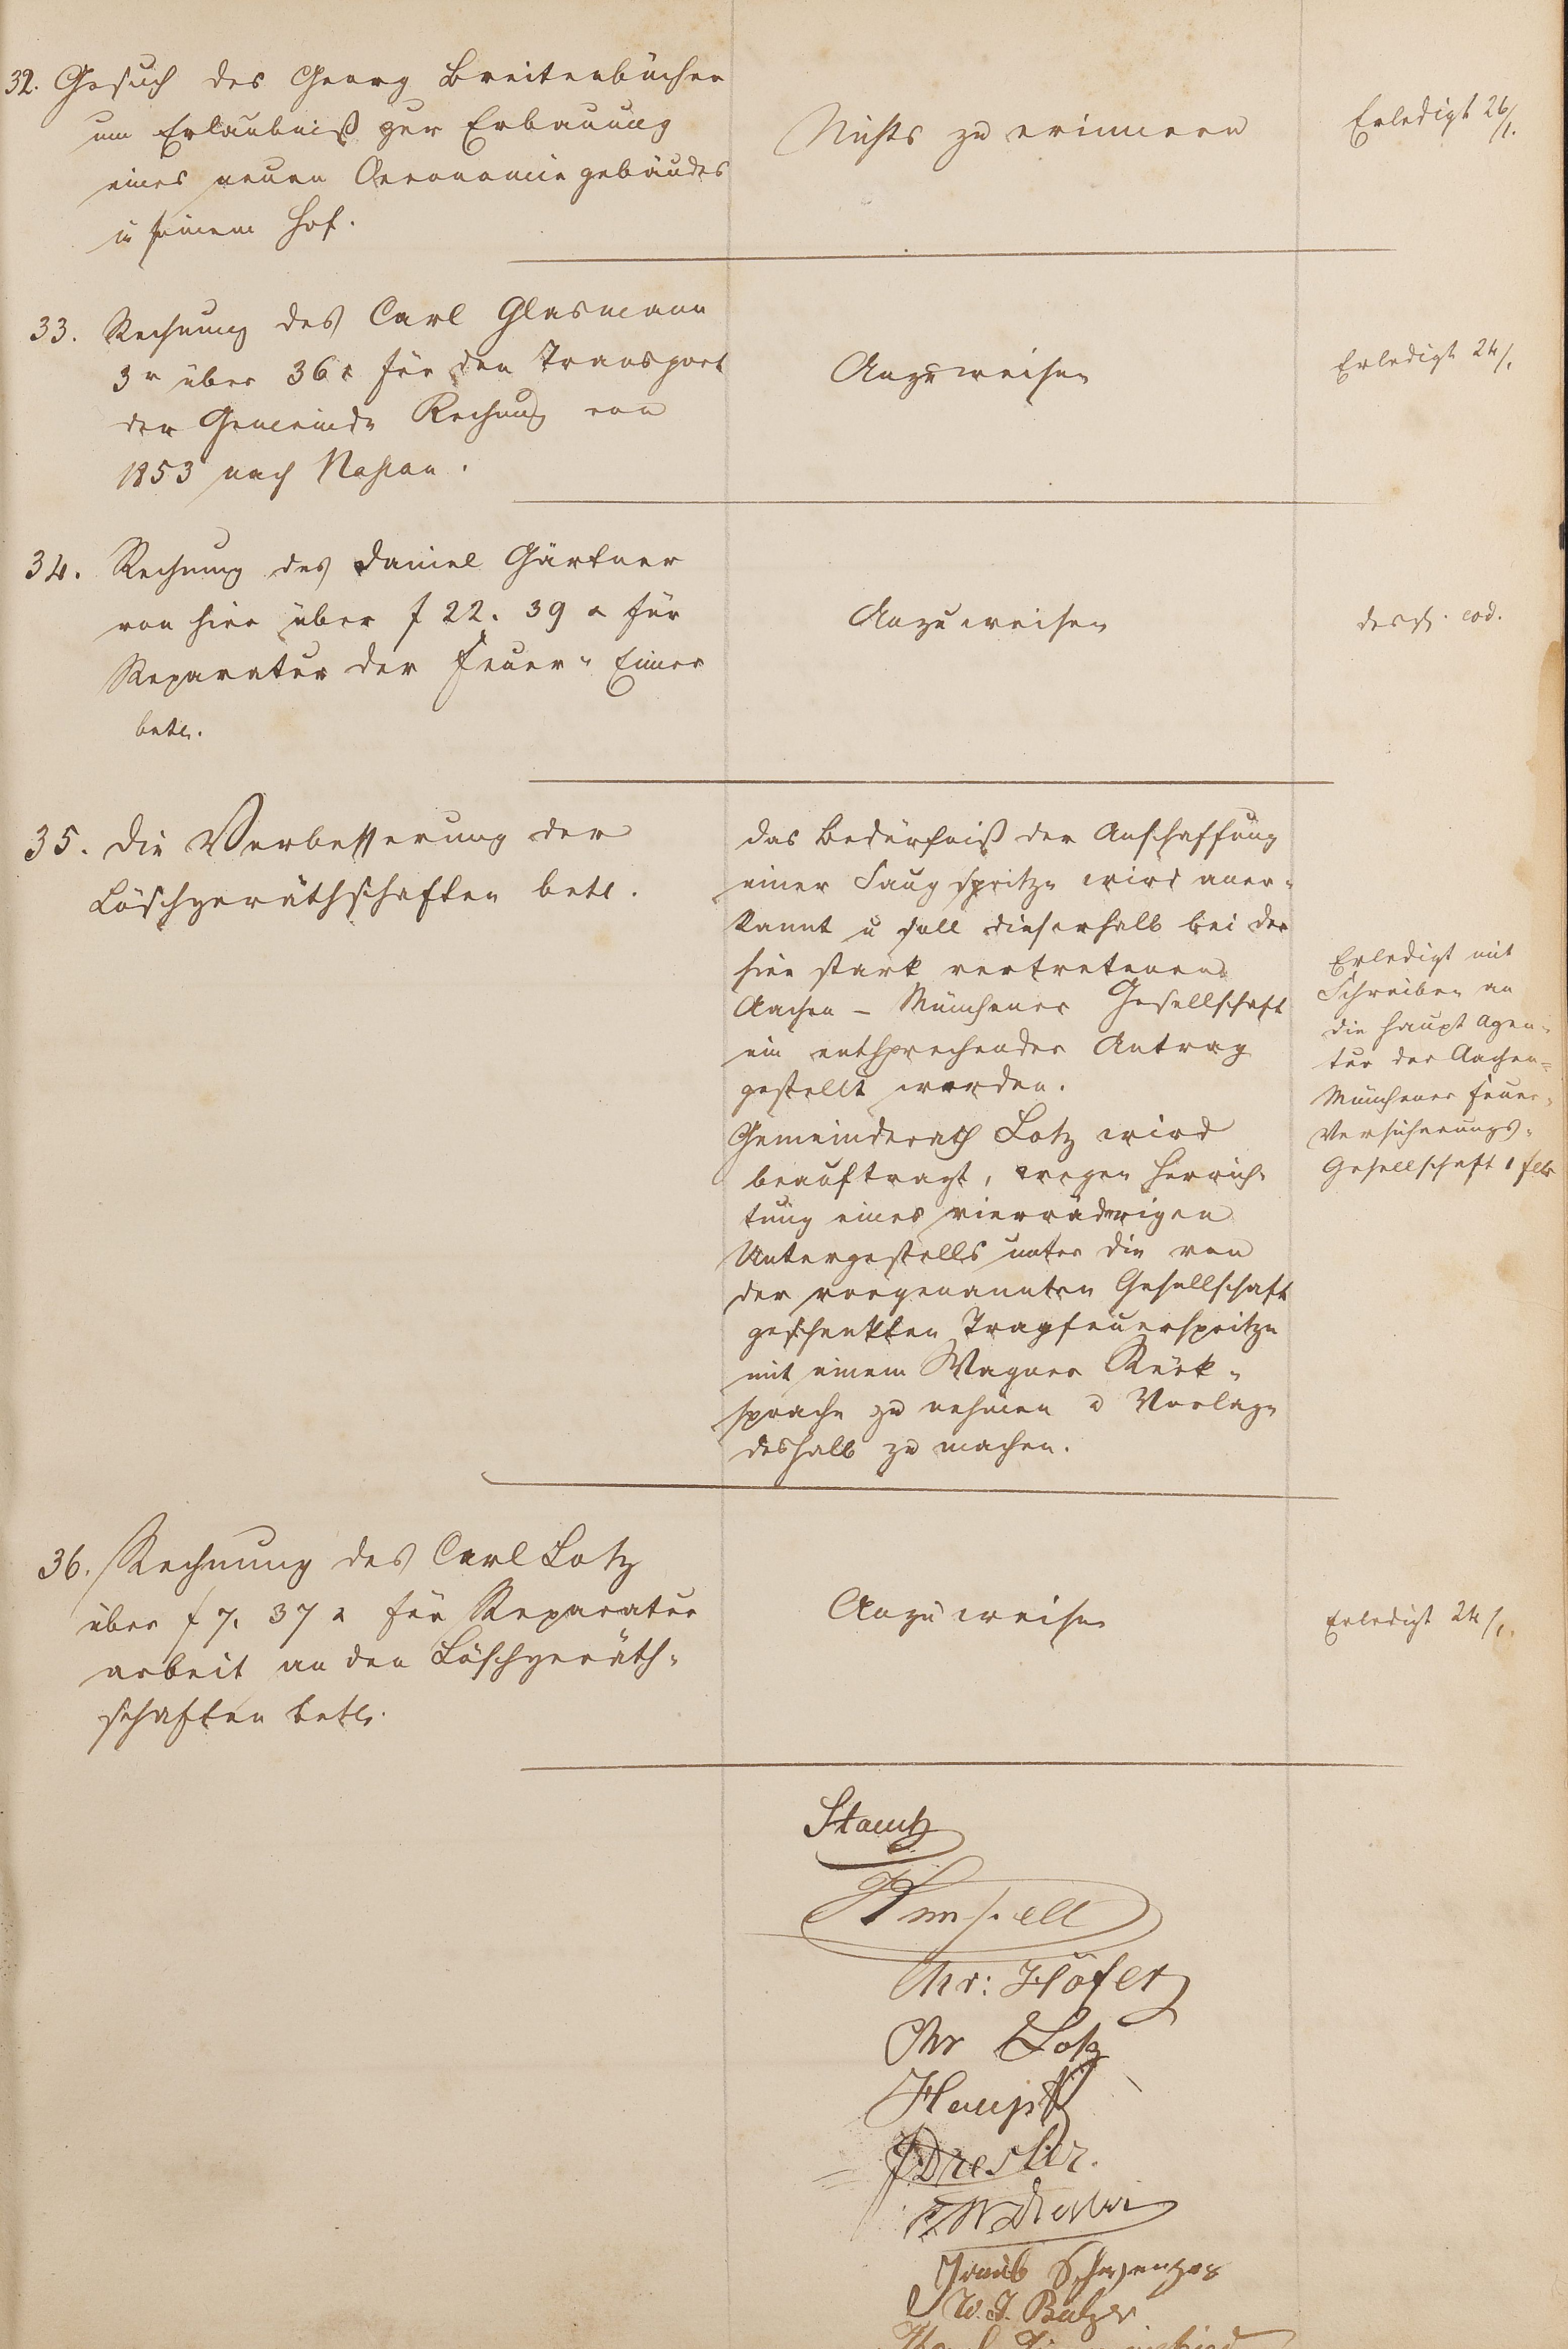 32. Gesuch des Georg Breitenbücher
um Erlaubniß zur Erbauung
eines neuen Oeconomiegebäudes
in seinem Hof.
Nichts zu erinnern
Erledigt 26/1.
33. Rechnung des Carl Glasmann
3r über 36 x für den Transport
der Gemeinde Rechnung von
1853 nach
Anzuweisen
Erledigt 24/1.
34. Rechnung des Daniel Gärtner
von hier über f 22. 39 x für
Reparatur der Feuer-Eimer
betr.
Anzuweisen
desgl. eod.
35. Die Verbesserung der
Löschgeräthschaften betr.
Das Bedürfniß der Anschaffung
einer Saugspritze wird aner-
kannt u soll dieserhalb bei der
hier stark vertretenen
Aachen - Münchener Gesellschaft
ein entsprechender Antrag
gestellt werden.
Gemeinderath Lotz wird
beauftragt, wegen Herrich-
tung eines vierräderigen
Untergestells unter die von
der vorgenannten Gesellschaft
geschenkten Tragfeuerspritze
mit einem Wagner Rück-
sprache zu nehmen u Vorlage
deshalb zu machen.
Erledigt mit
Schreiben an
die Haupt Agen-
tur der Aachen-
Münchener Feuer-
Versicherungs-
Gesellschaft 1 febr
36. Rechnung des Carl Lotz
über f 7. 37 x für Reparatur
arbeit an den Löschgeräth-
schaften betr.
Anzuweisen
Erledigt 24/1.
Chr: Höfer
Chr Lotz
Haupt
Dresler.
W. J. Balzer